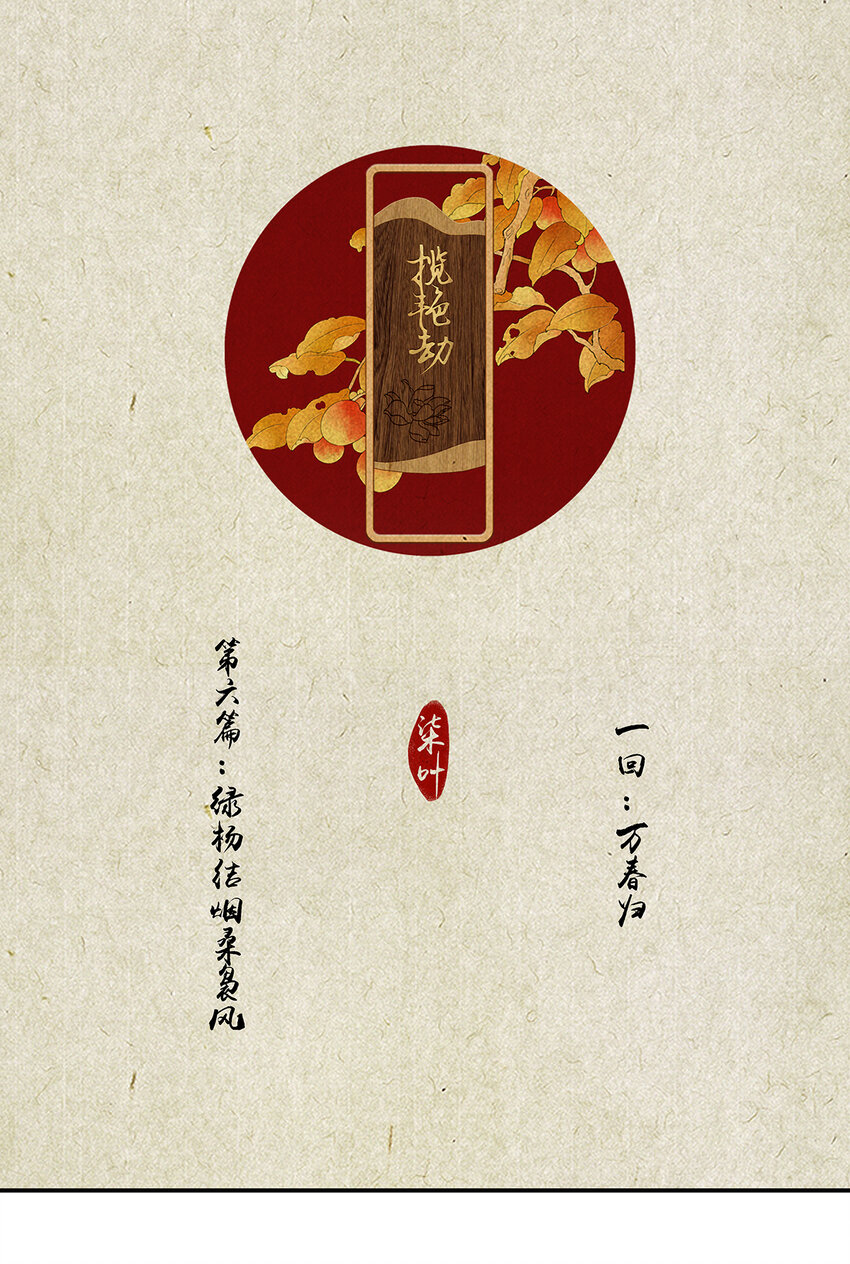 揽艳劫
第六篇：绿杨结烟桑袅风
柒叶
一回：万春归